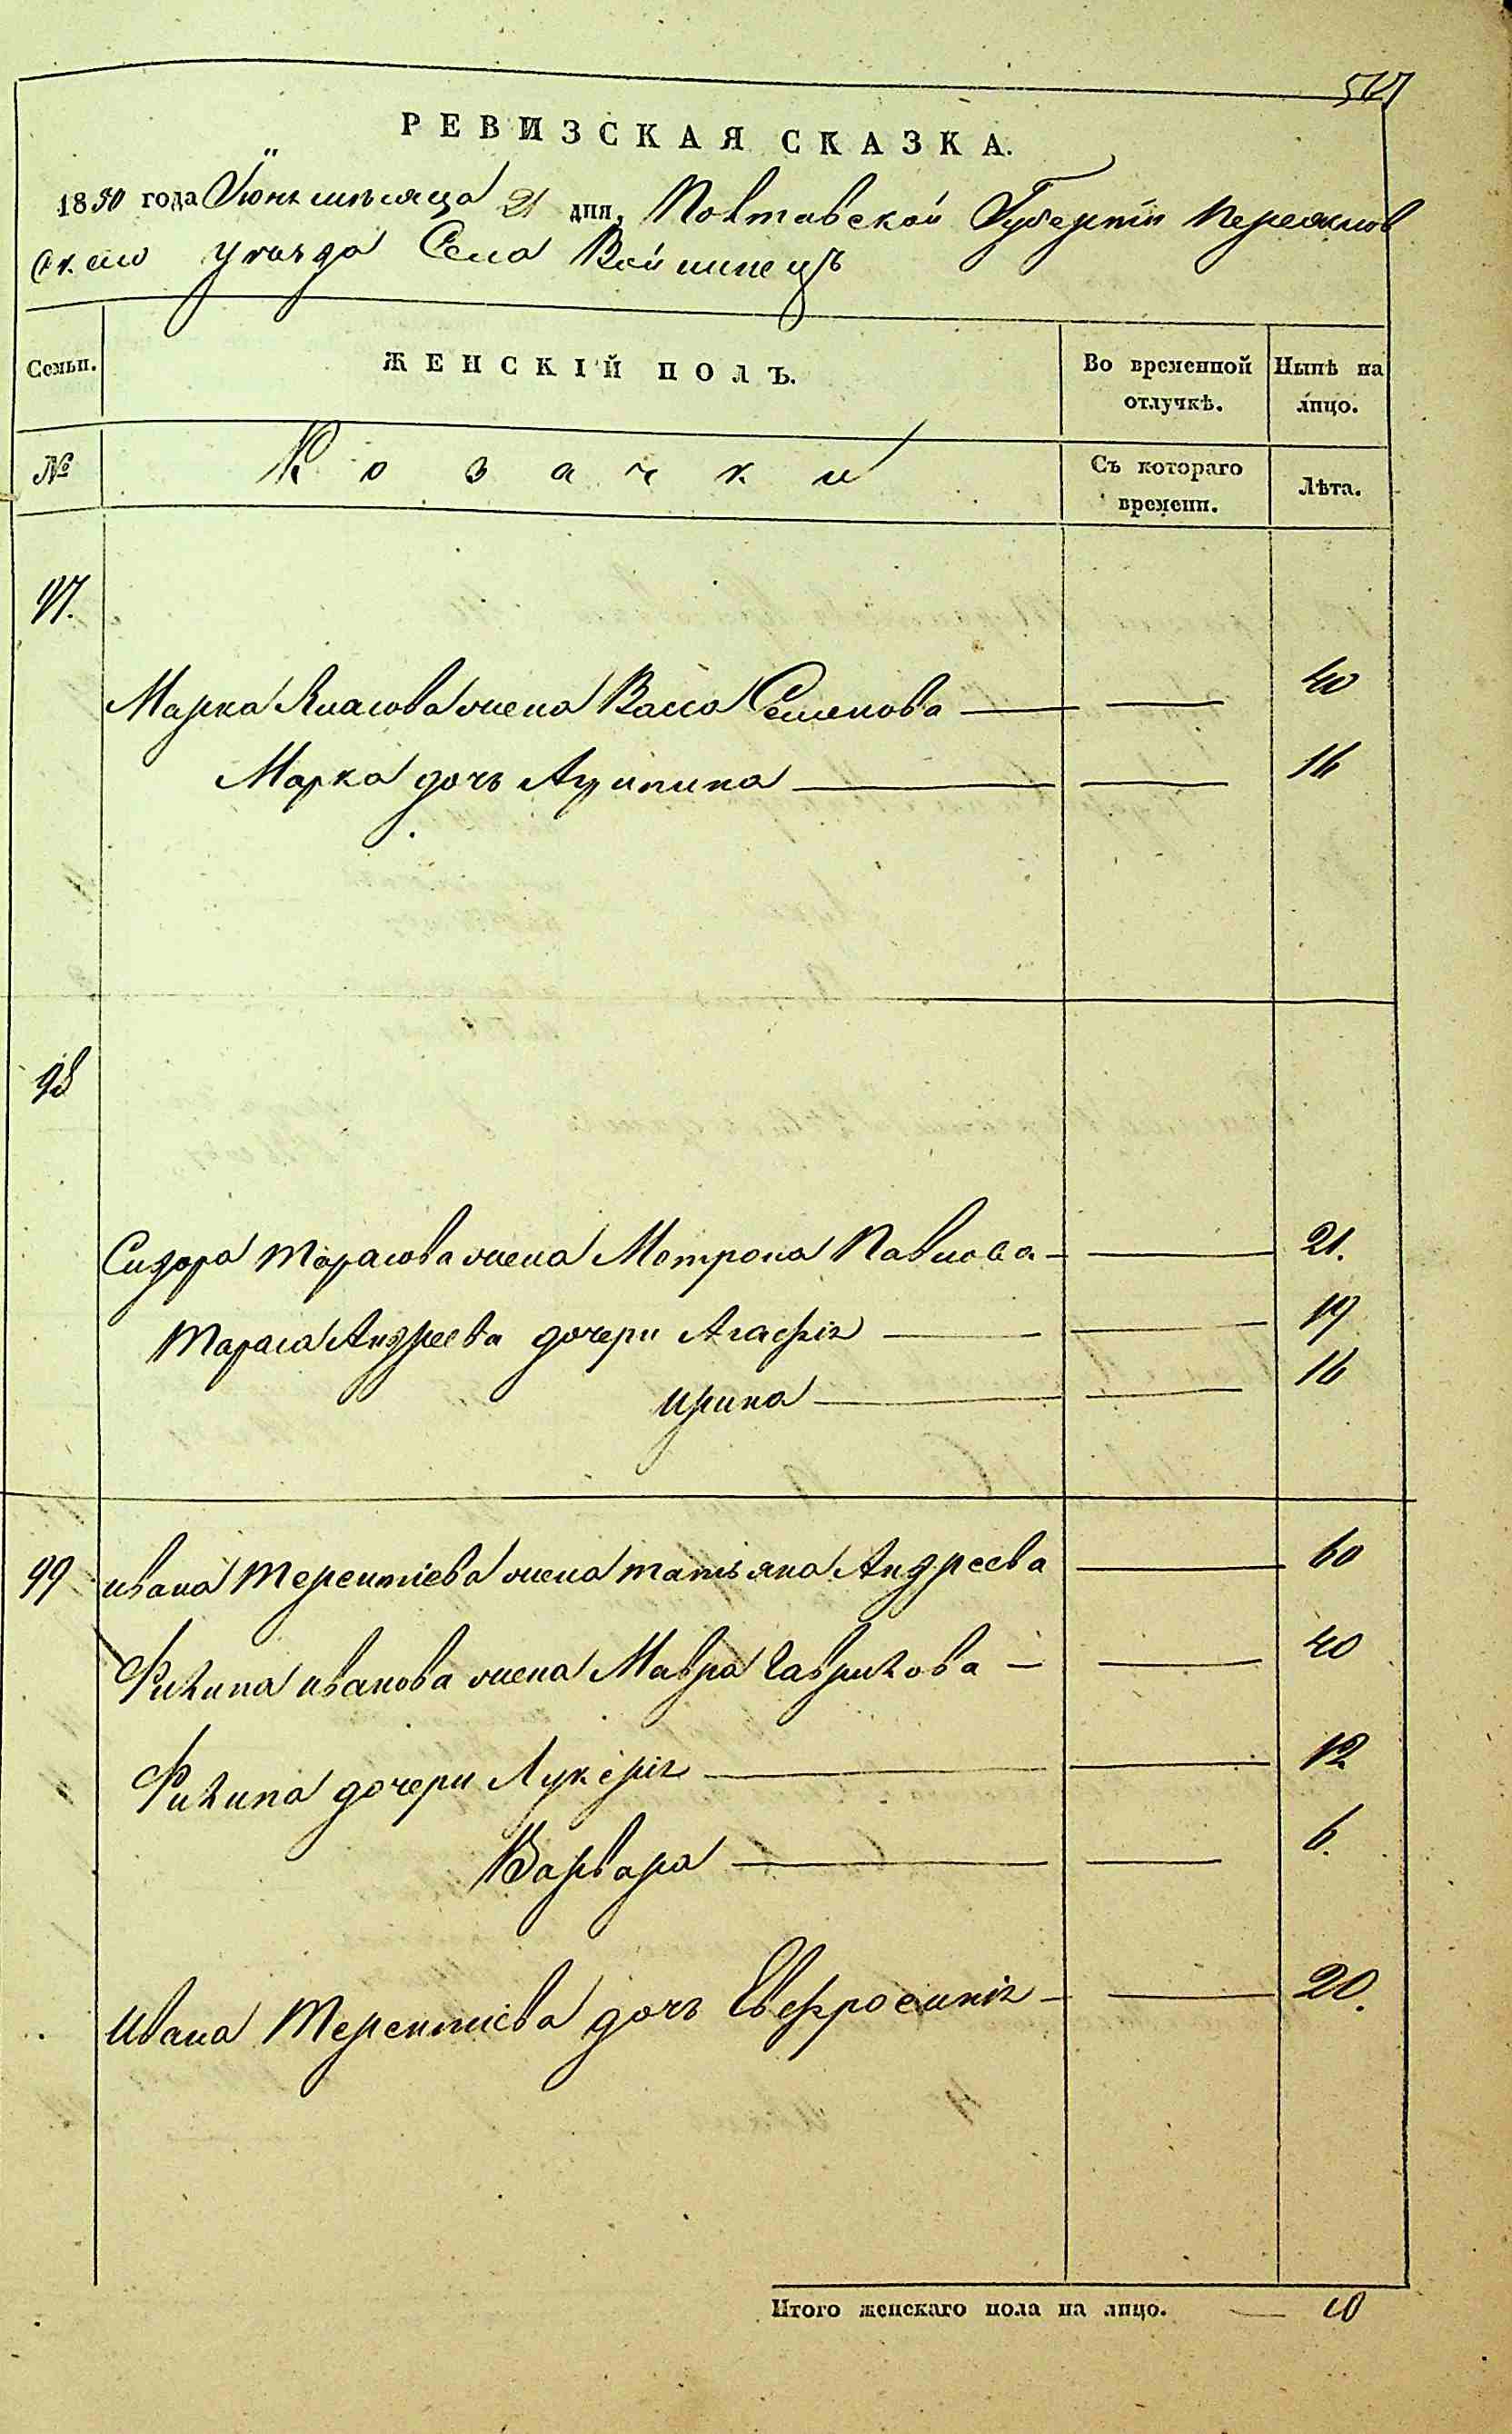 РЕВИЗСКАЯ СКАЗКА.
1850 года Іюня мѣсяца 21 дня, Полтавской Губерніи Переяслов
скаго уѣзда Села Войнинецъ
Семьи.
ЖЕНСКІЙ ПОЛЪ.
Во временной отлучкѣ.
Нынѣ на лицо.
№
Козачки
Съ котораго времени.
Лѣта.
97.
Марка Власова жена Васса Семенова 40
Марка дочь Агрипина 16
98
Сидора Тарасова жена Мотрона Павлова 21.
Тараса Андреева дочери Агафія 19
Ирина 16
99 Ивана Терентіева жена Татьяна Андреева 60
Филипа Иванова жена Мавра Гаврилова 40
Филипа дочери Лукерія 12
Варвара 6.
Ивана Терентиева дочь Евфросинія 20.
Итого женскаго пола на лицо. 10